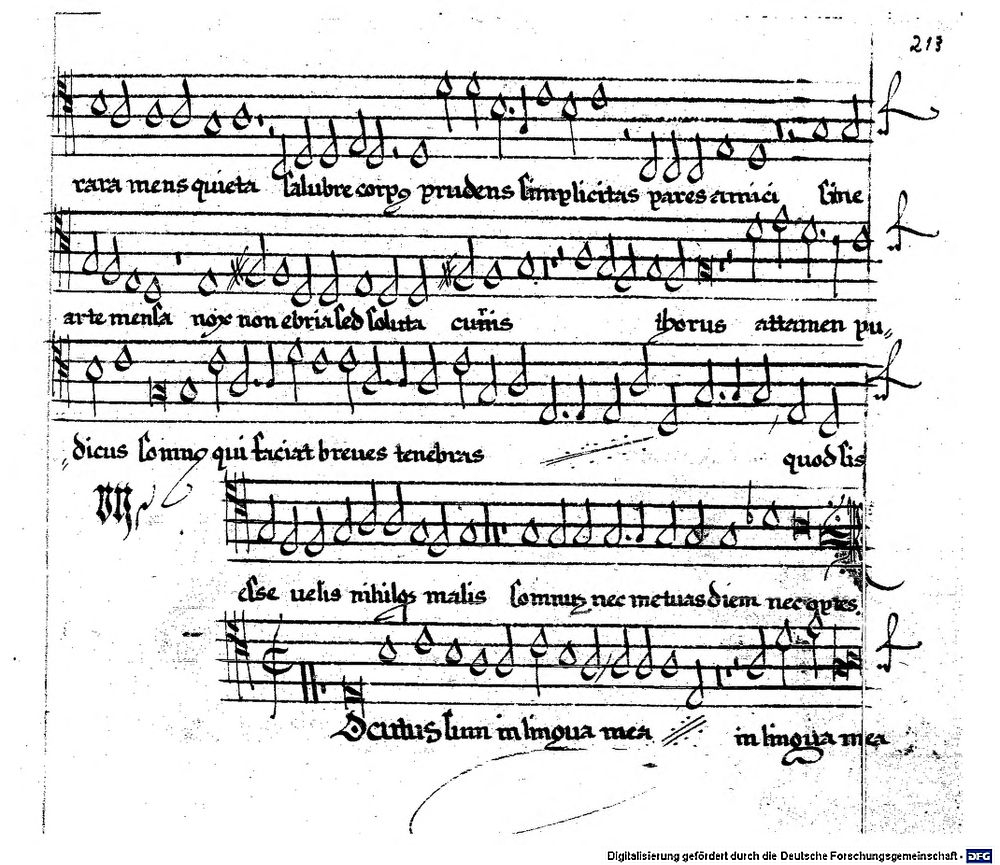 213
rara mens quieta salubre corpꝰ prudens simplicitas pares amici sine
arte mensa nox non ebria sed soluta thorus attamen pu„
„dicus somnꝰ qui faciat breues tenebras quod sis
esse uelis nihilqꝫ malis nec metuas diem nec optes.
Locutus sum in lingua mea in lingua mea
Digitalisierung gefördert durch die Deutsche Forschungsgemeinschaft - DFG